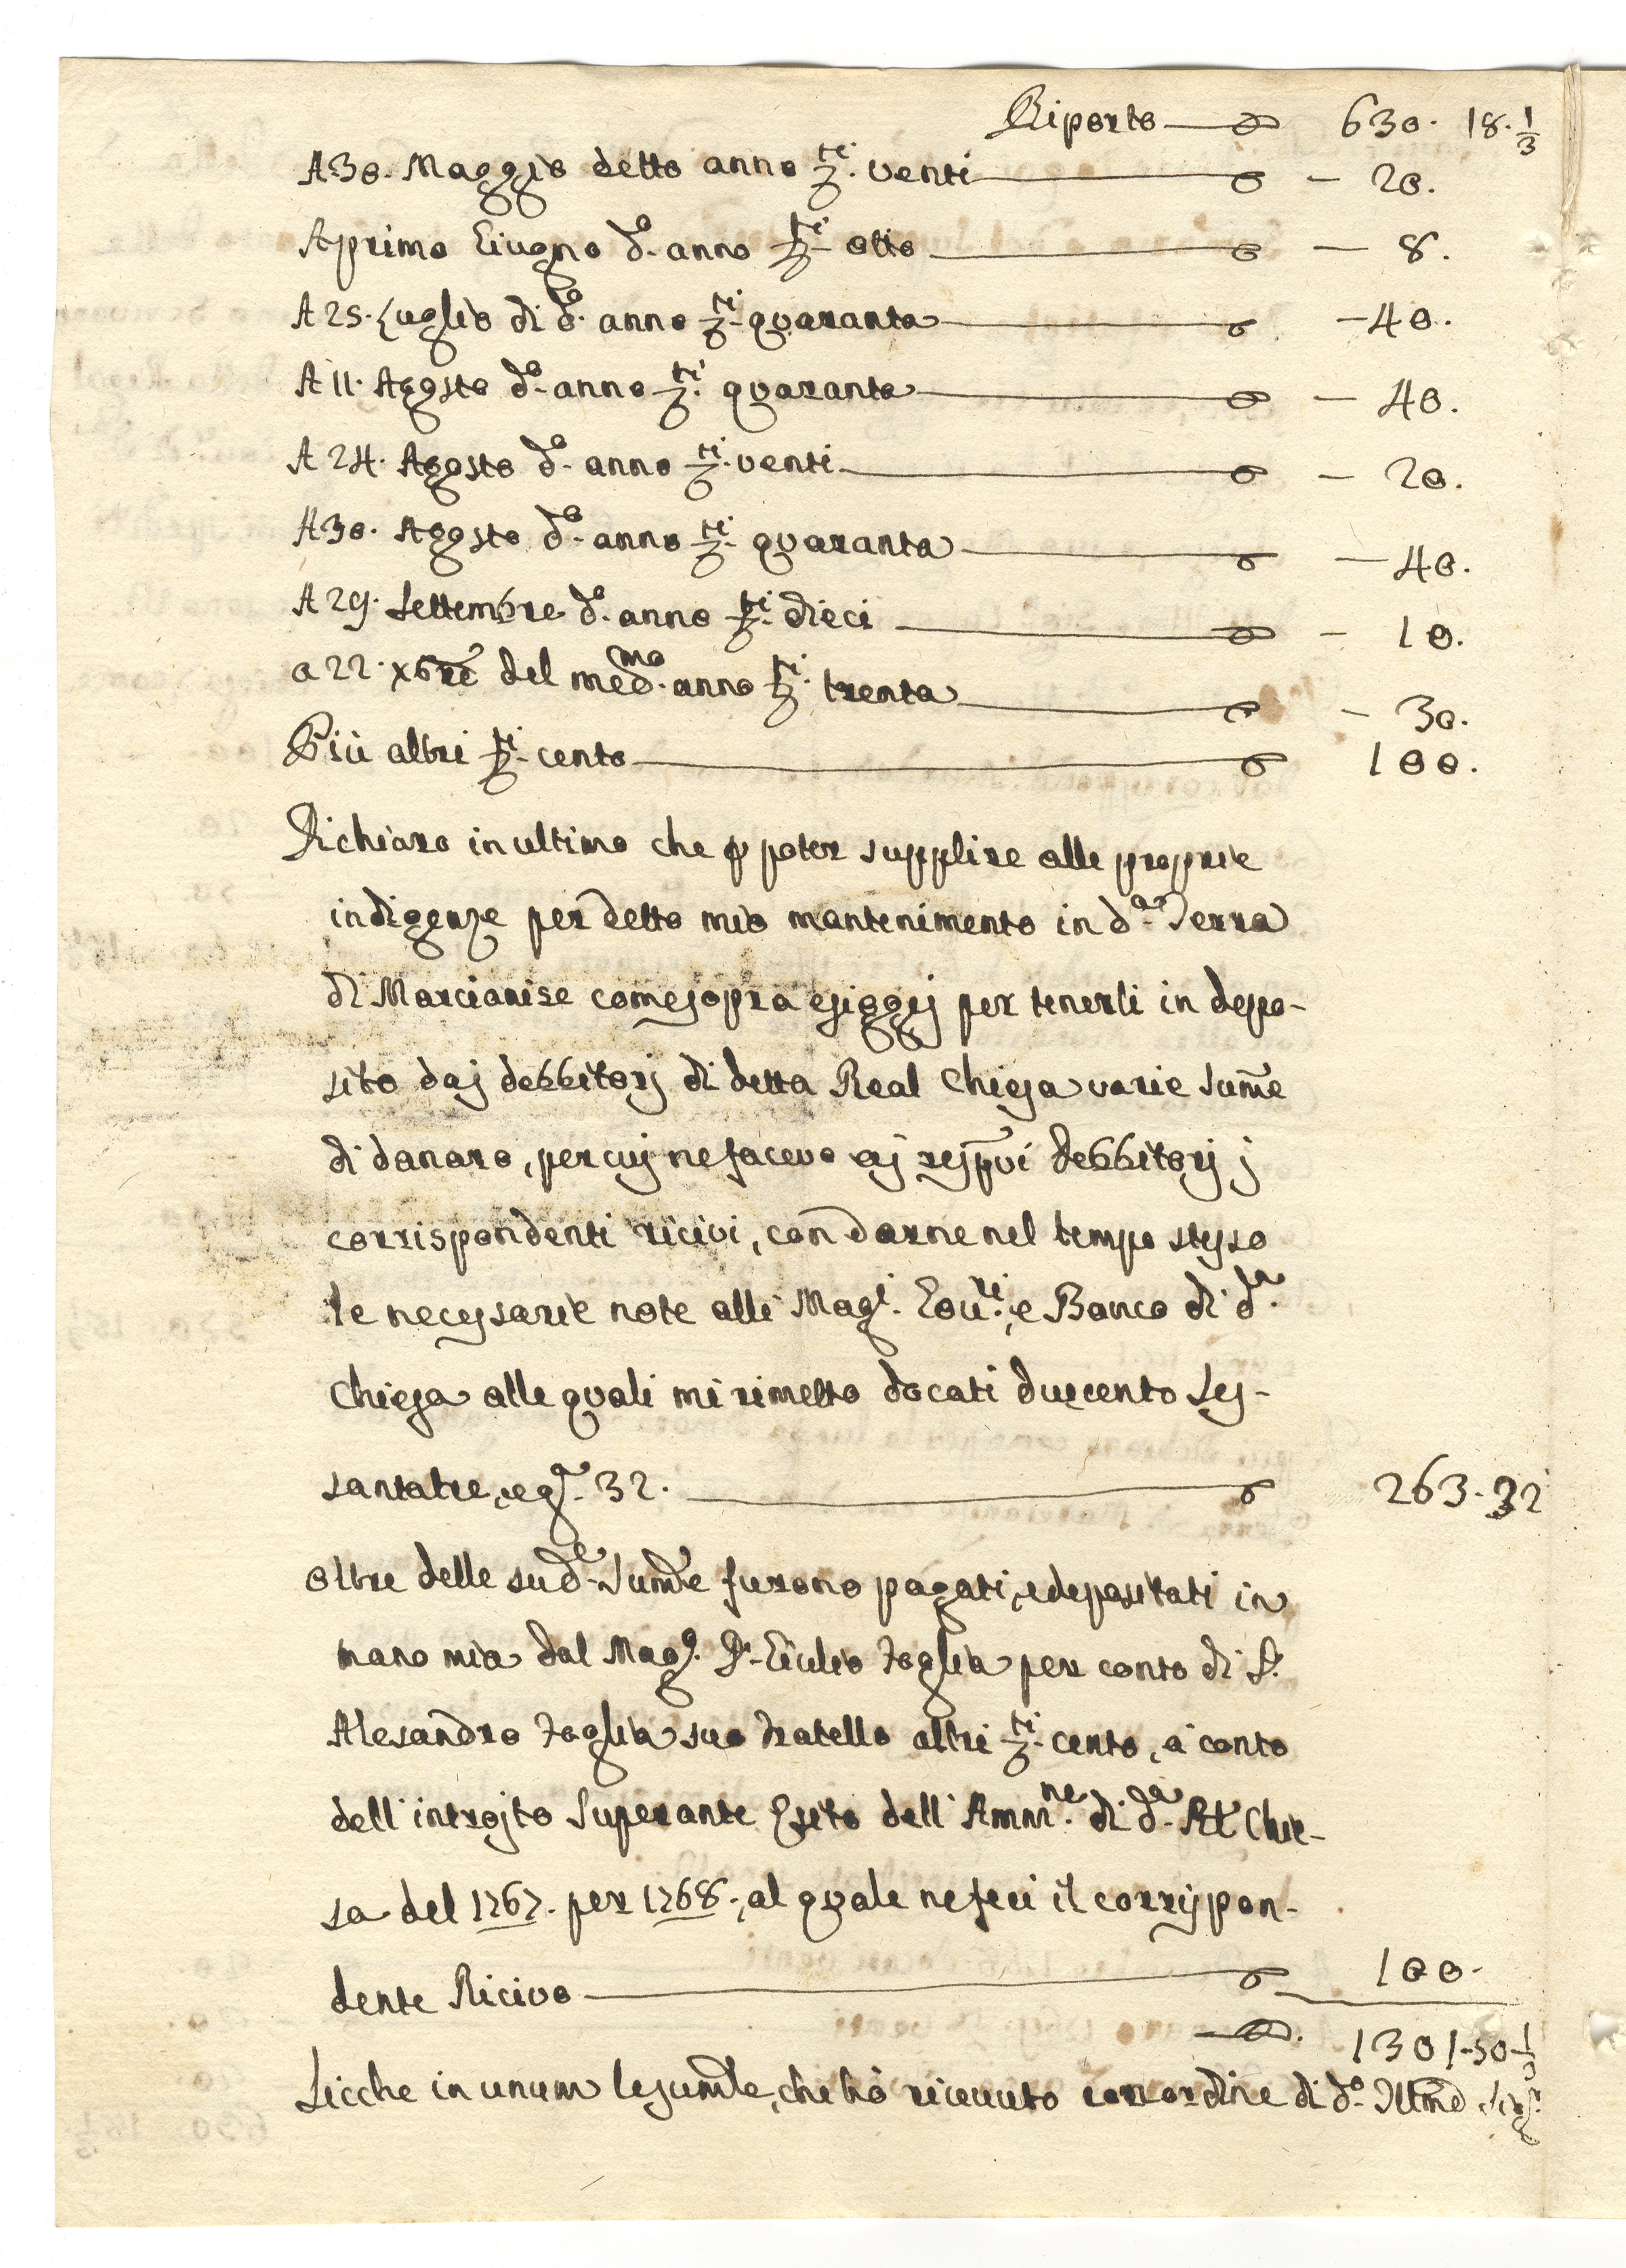 Riporto — 630. 18. 1/3
A 30. Maggio detto anno d.ti venti — 20.
A primo Giugno d.o anno d.ti otto — 8.
A 25. Luglio di d.o anno d.ti quaranta — 40.
A 11. Agosto d.o anno d.ti quaranta — 40.
A 24. Agosto d.o anno d.ti venti — 20.
A 30. Agosto d.o anno d.ti quaranta — 40.
A 29. Settembre d.o anno d.ti dieci — 10.
a 22. xbre del med.mo anno d.ti trenta — 30.
Più altri d.ti cento — 100.
Dichiaro in ultimo che p poter supplire alle proprie
indigenze per detto mio mantenimento in d.a Terra
di Marcianise come sopra esiggej per tenerli in depo-
sito daj debbitorj di detta Real Chiesa varie sum̃e
di danaro, per cuj ne facevo aj resp̃vi debbitorj j
corrispondenti ricivi, con darne nel tempo stesso
le necessarie note alli Mag.i Gov.ri, e Banco di d.a
Chiesa alle quali mi rimetto docati duecento ses-
santatre, e g.a 32. — 263-32
Oltre delle sud.e sum̃e furono pagati, e depositati in
mano mia dal Mag.o D. Giulio Foglia per conto di D.
Alesandro Foglia suo Fratello altri d.ti cento, a conto
dell'introjto superante Esito dell'Amm.ne di d.a Rl Chie-
sa del 1767. per 1768., al quale ne feci il corrispon-
dente Ricivo — 100.
— 1301-50-1/3
Sicche in unum le sum̃e, che hò ricevuto con ordine di d.o Illm̃o Sig.r